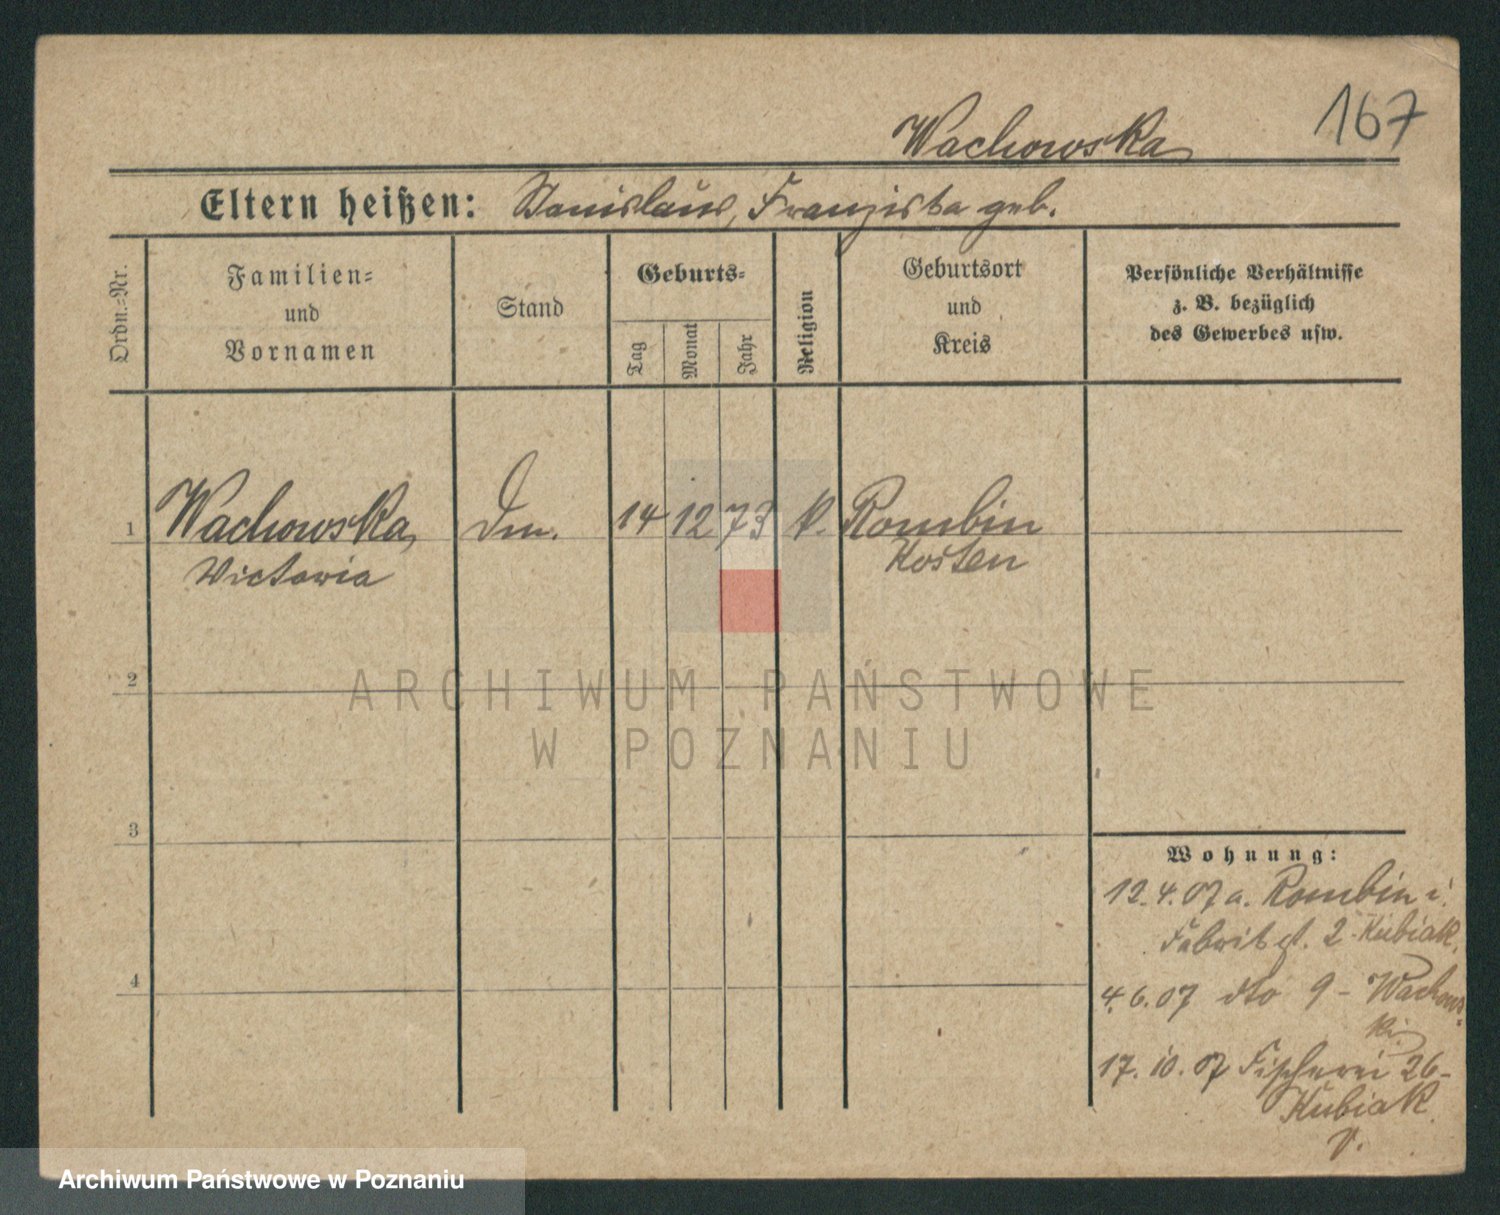 167
Wachowska
Eltern heißen: Stanislaus, Franziska geb.
Ordn.=Nr.
Familien=
und
Vornamen
Stand
Geburts=
Tag
Monat
Jahr
Religion
Geburtsort
und
Kreis
Persönliche Verhältnisse
z. B. bezüglich
des Gewerbes usw.
1 Wachowska, 14 12 73 k. Rombin
Victoria Kosten
2
3
4
Wohnung:
12.4.07 a. Rombin i.
Fabrikst. 2 - Kubiak.
4.6.07 dto 9 - Wachows-
ki
17.10.07 Fischerei 26-
Kubiak
V.
ARCHIWUM PAŃSTWOWE
W POZNANIU
Archiwum Państwowe w Poznaniu